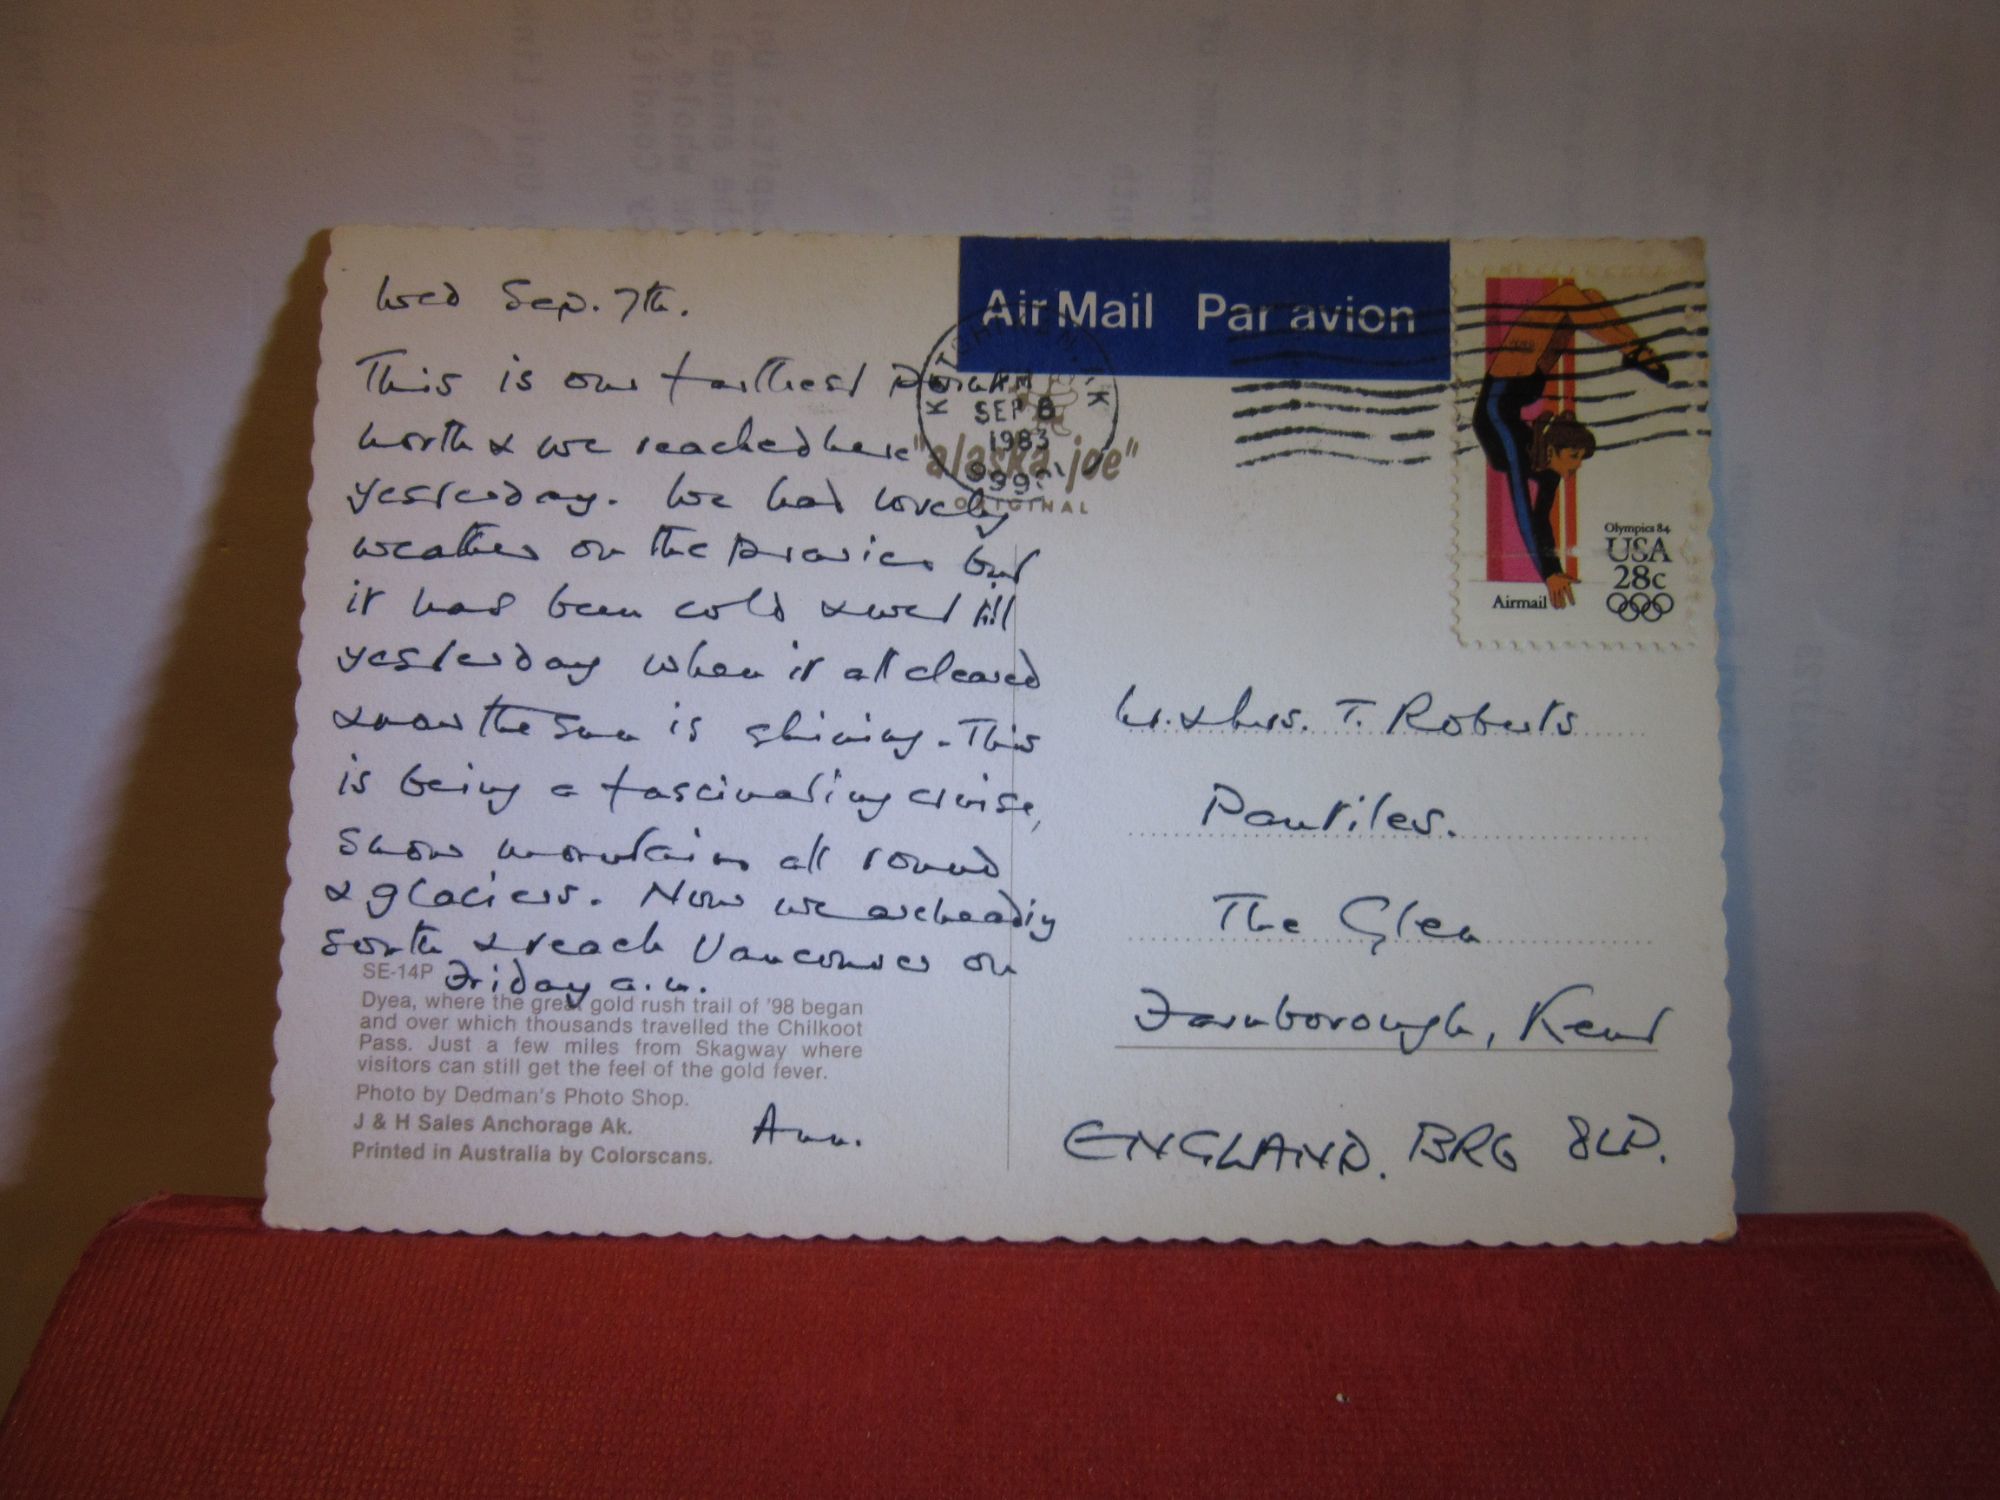 Wed Sep. 7th.
This is our farthest point
north & we reached here
yesterday. We had lovely
weather on the prairies but
it has been cold & wet till
yesterday when it all cleared
& now the sun is shining. This
is being a fascinating cruise,
snow mountains all round
& glaciers. Now we are heading
south & reach Vancouver on
Friday a.m.
Ann.
SE-14P
Dyea, where the great gold rush trail of '98 began
and over which thousands travelled the Chilkoot
Pass. Just a few miles from Skagway where
visitors can still get the feel of the gold fever.
Photo by Dedman's Photo Shop.
J & H Sales Anchorage Ak.
Printed in Australia by Colorscans.
Air Mail Par avion
KETCHIKAN, AK
AM
SEP 8
1983
"alaska joe"
ORIGINAL
Olympics 84
USA
28c
Airmail
Mr. & Mrs. T. Roberts
Pantiles.
The Glen
Farnborough, Kent
ENGLAND. BR6 8LP.